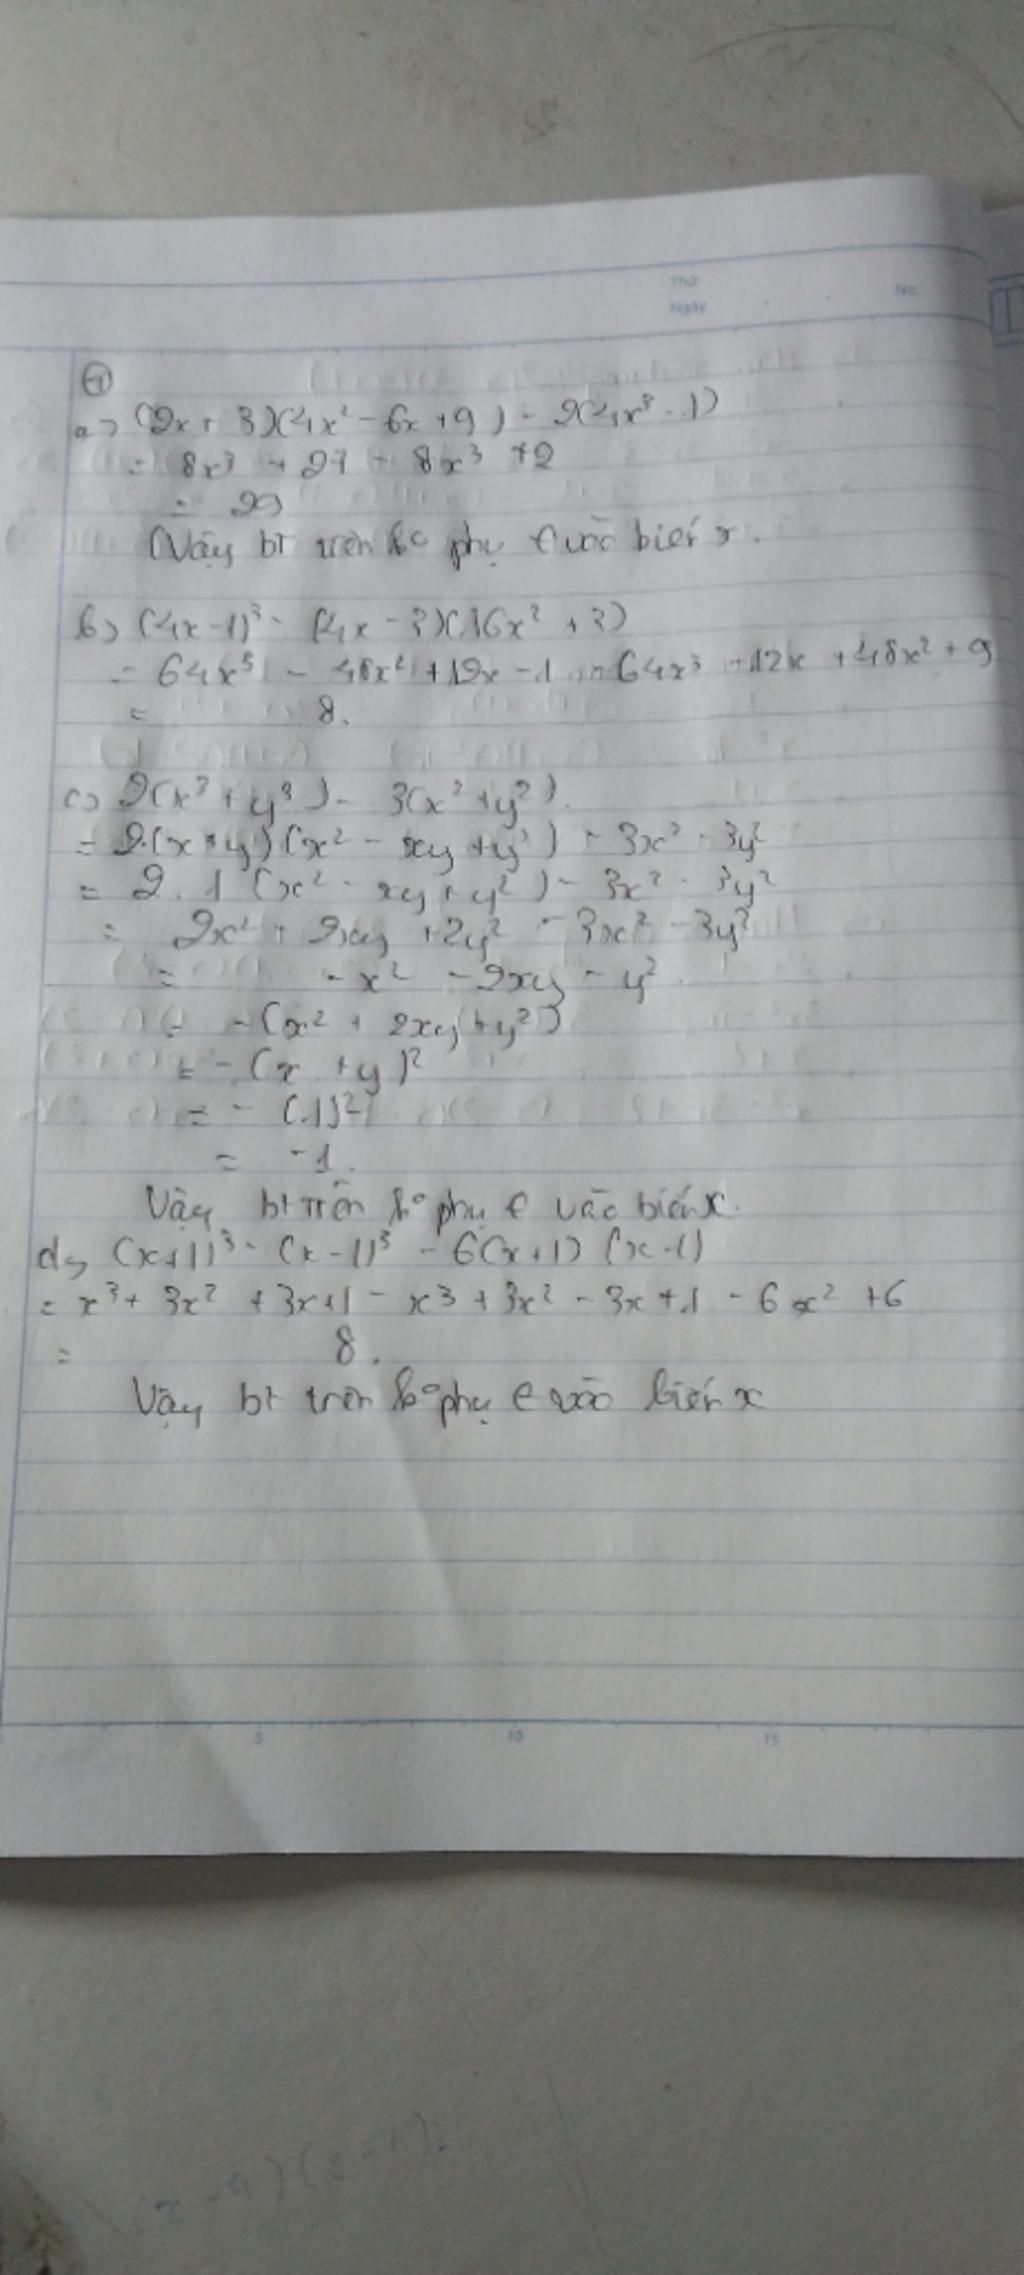 Thứ
Ngày No.
a) (2x + 3)(4x² - 6x + 9) - 2(4x³ - 1)
= 8x³ + 27 - 8x³ + 2
= 29
Vậy bt trên ko phụ € vào biến x.
b) (4x - 1)³ - (4x - 3)(16x² + 3)
= 64x³ - 48x² + 12x - 1 - 64x³ - 12x + 48x² + 9
= 8.
c) 2(x³ + y³) - 3(x² + y²).
= 2.(x + y)(x² - xy + y²) - 3x² - 3y²
= 2. 1 (x² - xy + y²) - 3x² - 3y²
= 2x² + 2xy + 2y² - 3x² - 3y²
= - x² - 2xy - y².
= - (x² + 2xy + y²)
= - (x + y)²
= - (1)²
= -1.
Vậy bt trên ko phụ € vào biến x.
d) (x+1)³ - (x - 1)³ - 6(x+1)(x-1)
= x³ + 3x² + 3x + 1 - x³ + 3x² - 3x + 1 - 6x² + 6
= 8.
Vậy bt trên ko phụ € vào biến x
5 10 15